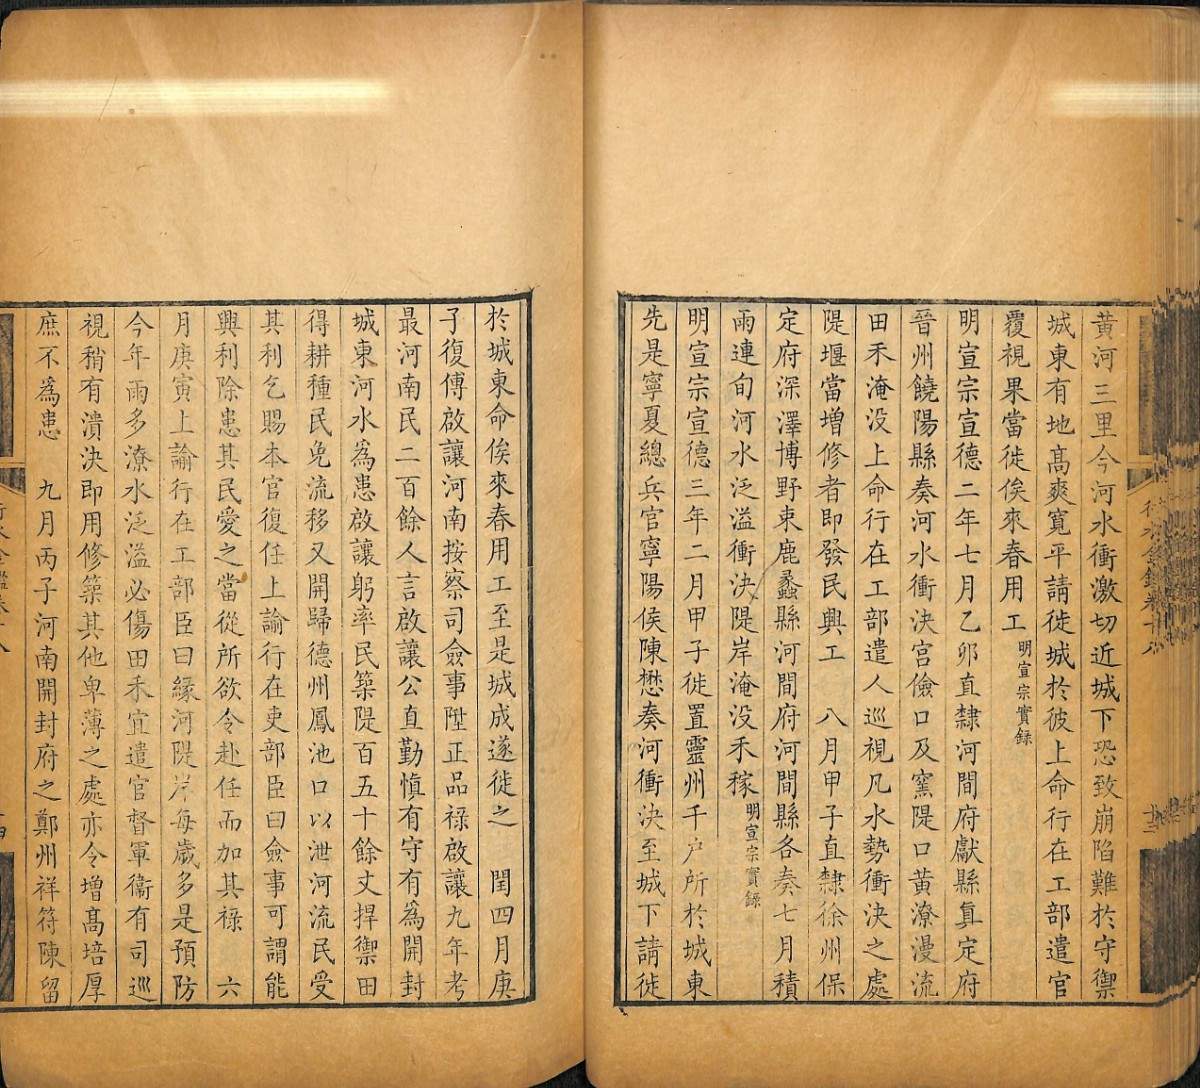 黃河三里今河水衝激切近城下恐致崩陷難於守禦
城東有地髙爽寛平請徙城於彼上命行在工部遣官
覆視果當徙俟來春用工明宣宗實録
明宣宗宣德二年七月乙卯直隸河間府獻縣真定府
晉州饒陽縣奏河水衝決宫儉口及窯隄口黃潦漫流
田禾淹没上命行在工部遣人巡視凡水勢衝決之處
隄堰當增修者即發民興工　八月甲子直隸徐州保
定府深澤博野束鹿蠡縣河間府河間縣各奏七月積
雨連旬河水泛溢衝決隄岸淹没禾稼明宣宗實録
明宣宗宣德三年二月甲子徙置靈州千户所於城東
先是寧夏總兵官寧陽侯陳懋奏河衝決至城下請徙
於城東命俟來春用工至是城成遂徙之　閏四月庚
子復傅啟讓河南按察司僉事陞正品祿啟讓九年考
最河南民二百餘人言啟讓公直勤慎有守有為開封
城東河水為患啟讓躬率民築隄百五十餘丈捍禦田
得耕種民免流移又開歸德州鳳池口以泄河流民受
其利乞賜本官復任上諭行在吏部臣曰僉事可謂能
興利除患其民愛之當從所欲令赴任而加其祿　六
月庚寅上諭行在工部臣曰緣河隄岸每歲多是預防
今年雨多潦水泛溢必傷田禾宜遣官督軍衞有司巡
視稍有潰決即用修築其他卑薄之處亦令增髙培厚
庶不為患　九月丙子河南開封府之鄭州祥符陳留